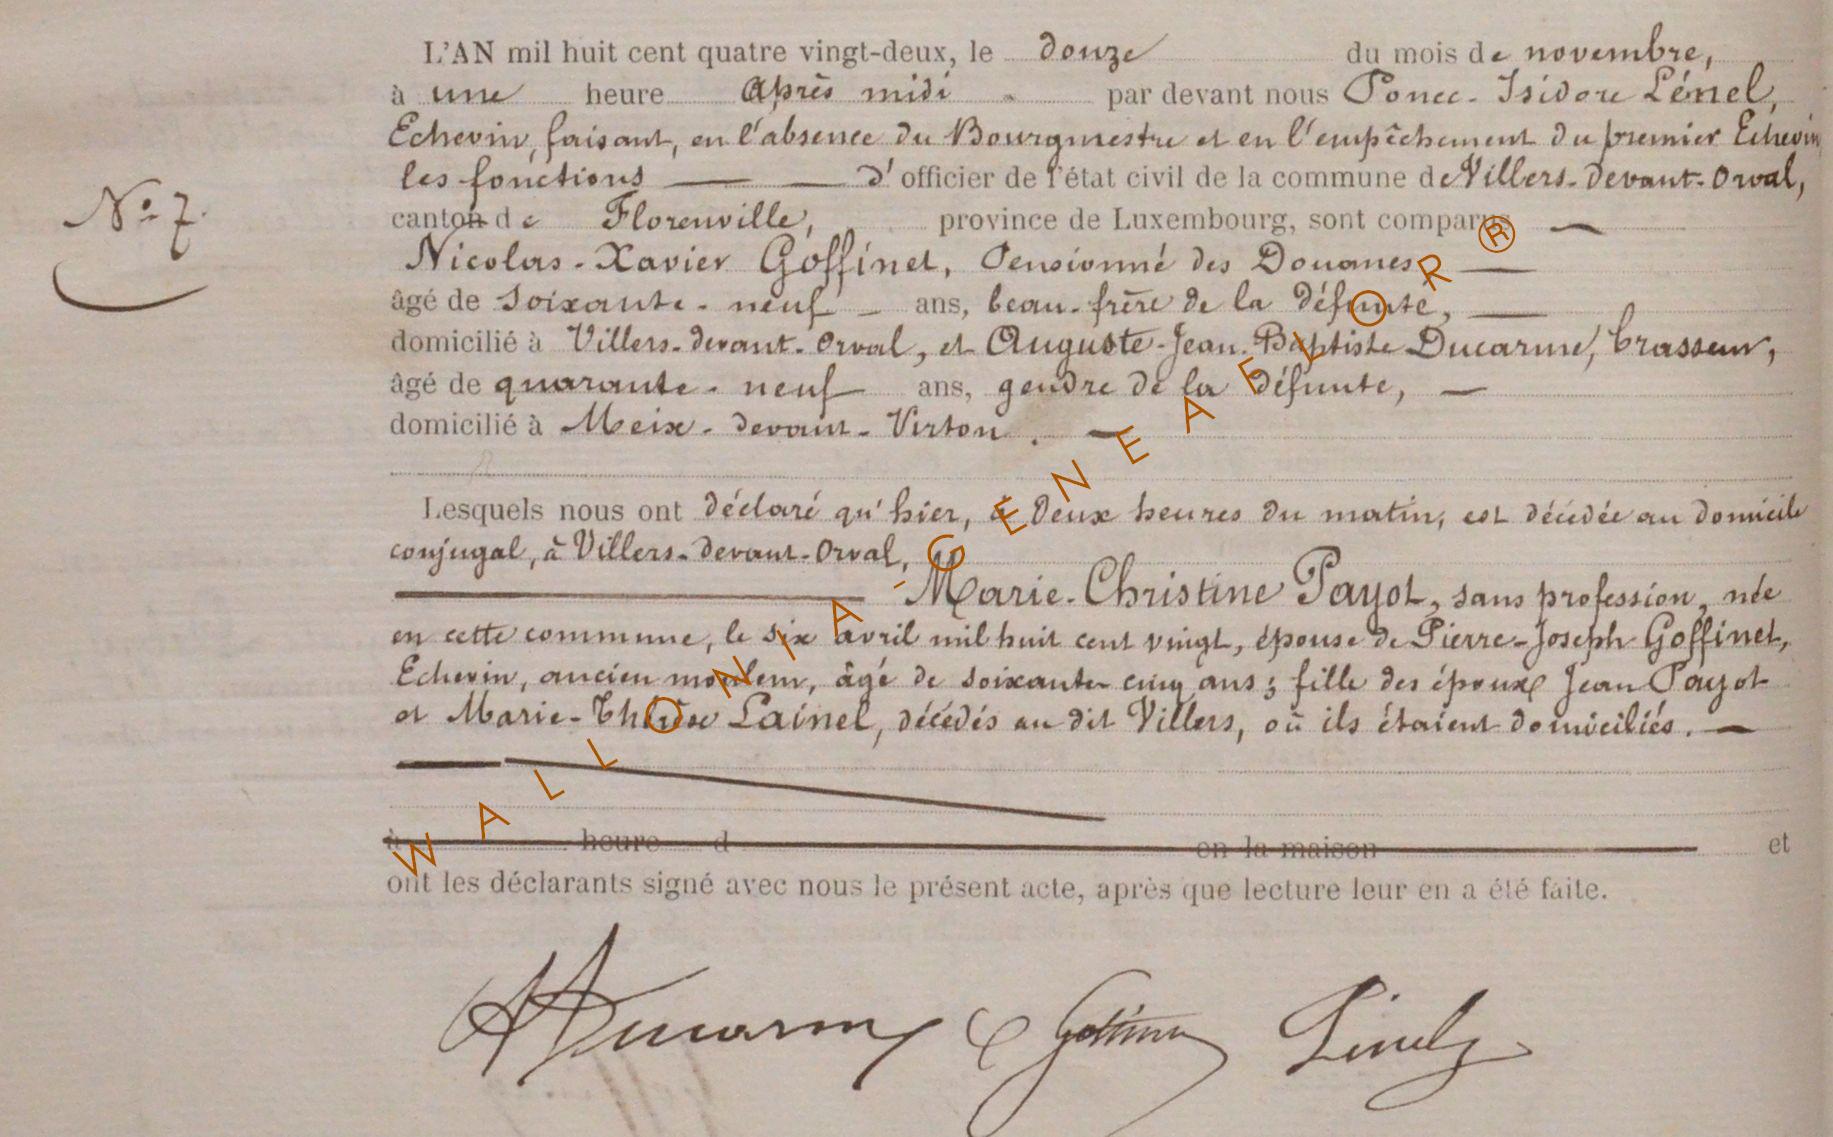 L'AN mil huit cent quatre vingt-deux, le douze du mois de novembre,
à une heure Après midi par devant nous Ponce-Isidore Lénel,
Echevin, faisant, en l'absence du Bourgmestre et en l'empêchement du premier Echevin
les fonctions d'officier de l'état civil de la commune de Villers-devant-Orval,
N° 7.
canton de Florenville, province de Luxembourg, sont comparus
Nicolas-Xavier Goffinet, Pensionné des Douanes
âgé de soixante-neuf ans, beau-frère de la défunte,
domicilié à Villers-devant-Orval, et Auguste-Jean-Baptiste Ducarme, brasseur,
âgé de quarante-neuf ans, gendre de la défunte,
domicilié à Meix-devant-Virton.
Lesquels nous ont déclaré qu'hier, à deux heures du matin, est décédée au domicile
conjugal, à Villers-devant-Orval,
Marie-Christine Payot, sans profession, née
en cette commune, le six avril mil huit cent vingt, épouse de Pierre-Joseph Goffinet,
Echevin, ancien meunier, âgé de soixante-cinq ans; fille des époux Jean Payot
et Marie-Thérèse Lainel, décédés au dit Villers, où ils étaient domiciliés.
à heure d en la maison et
ont les déclarants signé avec nous le présent acte, après que lecture leur en a été faite.
ADucarme Goffinet Lénel
WALLONIA-GENEAELOR®